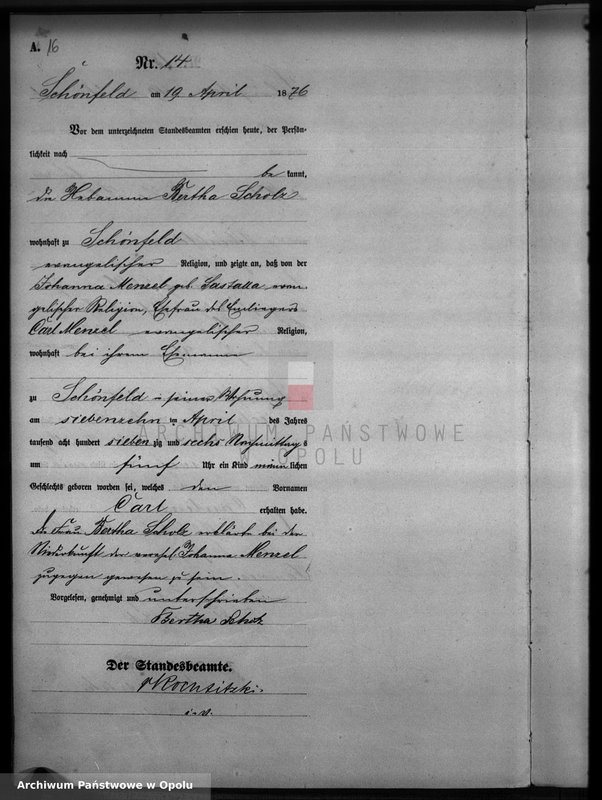 A. 16
Nr. 14.
Schönfeld am 19 April 1876
Vor dem unterzeichneten Standesbeamten erschien heute, der Persön-
lichkeit nach
be kannt,
die Hebamme Bertha Scholz
wohnhaft zu Schönfeld
evangelischer Religion, und zeigte an, daß von der
Johanna Menzel geb. evan-
gelischer Religion, Ehefrau des Einliegers
Carl Menzel evangelischer Religion,
wohnhaft bei ihrem Ehemann
zu Schönfeld in seiner Wohnung
am siebenzehn ten April des Jahres
tausend acht hundert sieben zig und sechs Nachmittags
um fünf Uhr ein Kind männ lichen
Geschlechts geboren worden sei, welches den Vornamen
Carl erhalten habe.
Die Frau Bertha Scholz erklärte bei der
Niederkunft der Johanna Menzel
zugegen gewesen zu sein.
Vorgelesen, genehmigt und unterschrieben
Bertha Scholz
Der Standesbeamte.
i. V.
ARCHIWUM PAŃSTWOWE
W OPOLU
Archiwum Państwowe w Opolu